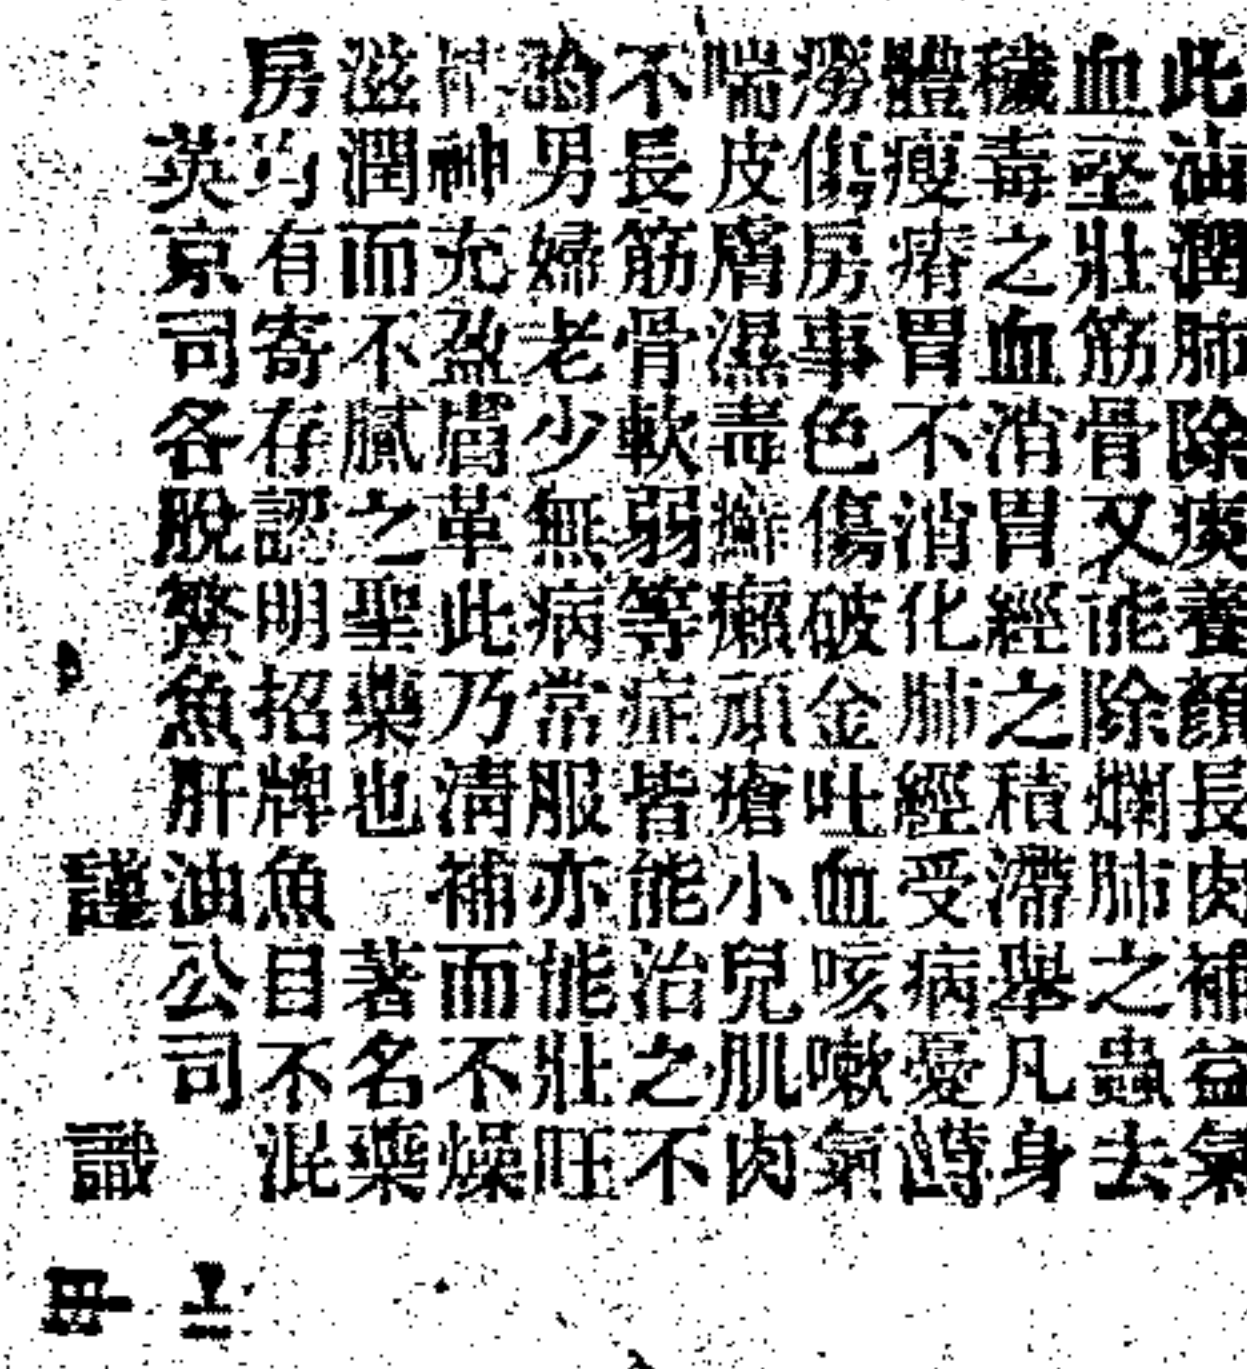 此油潤肺除痰養顏長肉補益氣
血堅壯筋骨又能除爛肺之蟲去
穢毒之血消胃經之積滯舉凡身
體瘦瘠胃不消化肺經受病憂
癆傷房事色傷破金吐血咳嗽氣
喘皮膚濕毒癬癩頑瘡小兒肌肉
不長筋骨軟弱等症皆能治之不
論男婦老少無病常服亦能壯旺
精神充盈膚革此乃清補而不燥
滋潤而不膩之聖藥也 著名藥
房均有寄存認明招牌魚目不混
英京司各脫鰵魚肝油公司
謹識